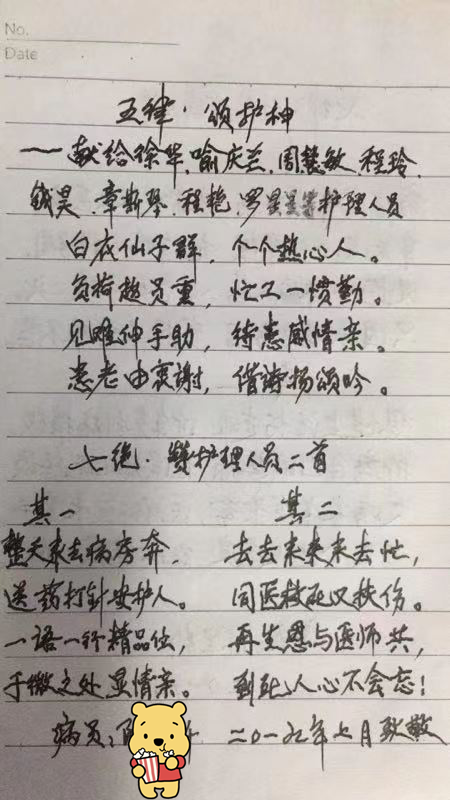 No.
Date
五律·颂护神
——献给徐华、喻庆兰、周慧敏、程玲、
钱昊、章斯琴、程艳、罗星星等护理人员
白衣仙子群,个个热心人。
负荷超员重,忙工一惯勤。
见难伸手助,待患感情亲。
患老由衷谢,借诗扬颂吟。
七绝·赞护理人员二首
其一 其二
整天来去病房奔, 去去来来来去忙,
送药打针安护人。 同医救死又扶伤。
一语一行精品位, 再生恩与医师共,
于微之处显情亲。 到死人心不会忘!
病员: 二〇一九年七月致敬